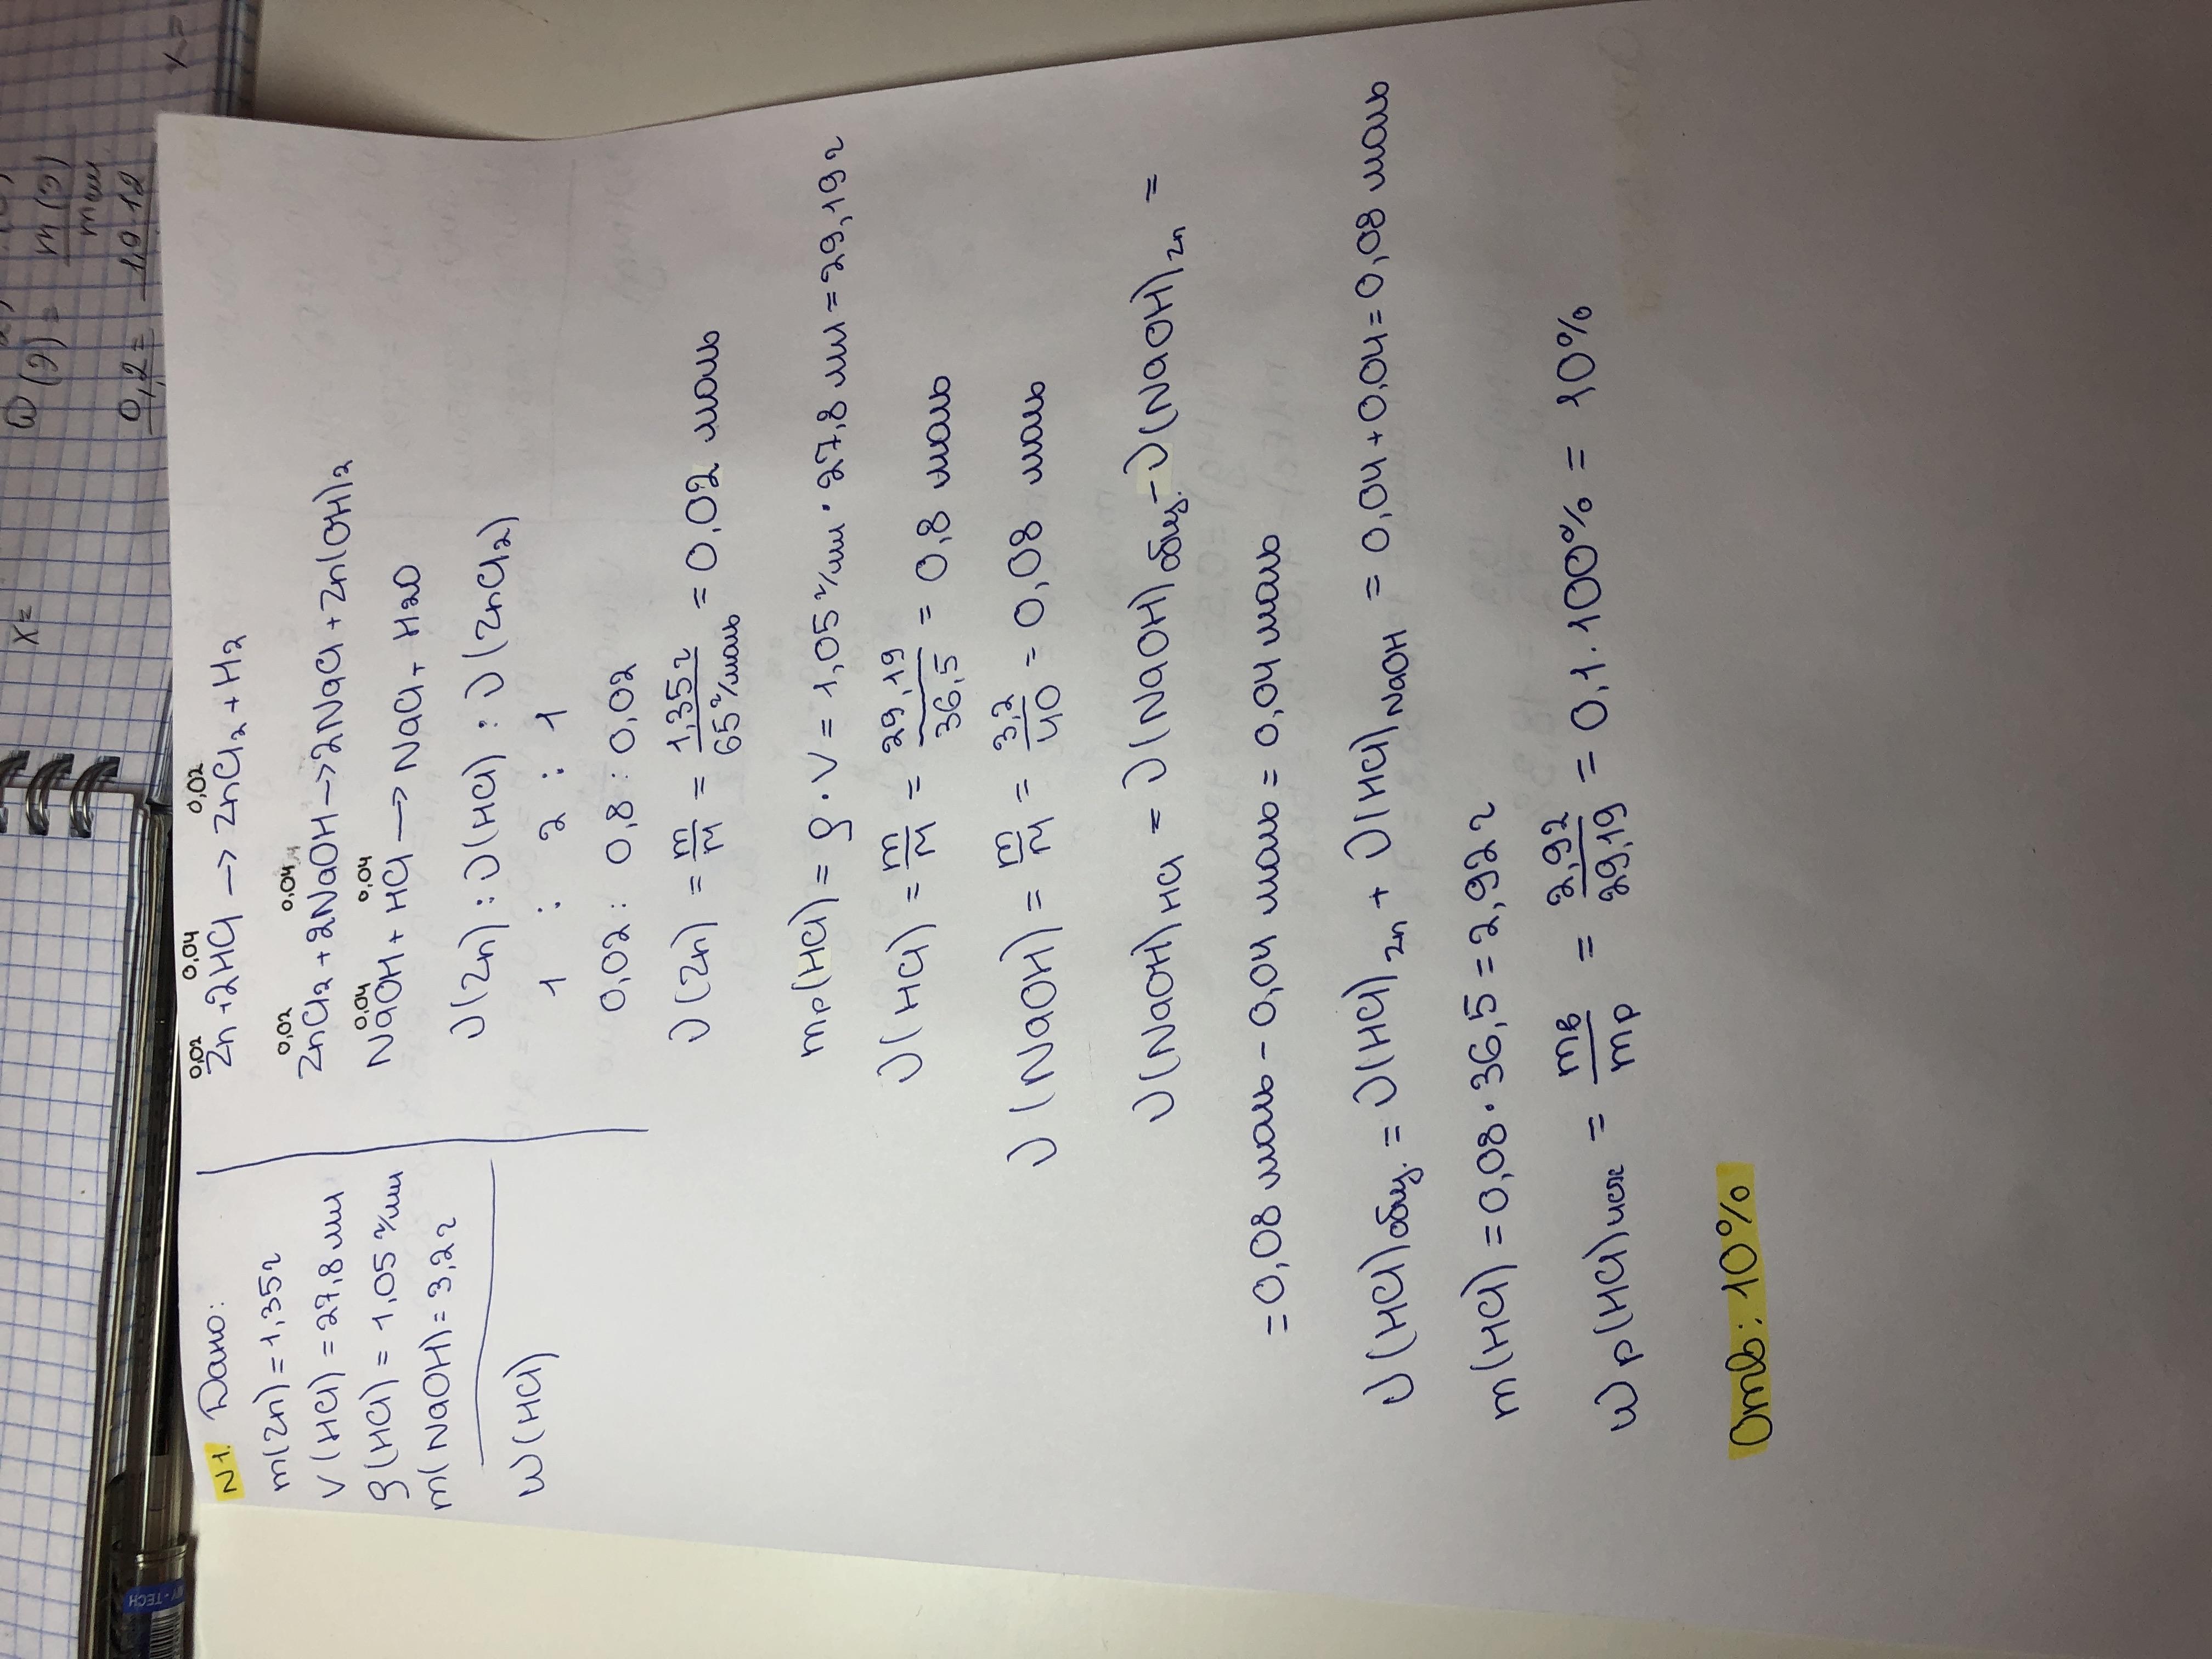 N1. Дано:
m(Zn) = 1,35г
V(HCl) = 27,8 мл
ρ(HCl) = 1,05 г/мл
m(NaOH) = 3,2г
W(HCl)
0,02 0,04 0,02
Zn + 2HCl → ZnCl₂ + H₂
0,02 0,04
ZnCl₂ + 2NaOH → 2NaCl + Zn(OH)₂
0,04 0,04
NaOH + HCl → NaCl + H₂O
ν(Zn) : ν(HCl) : ν(ZnCl₂)
1 : 2 : 1
0,02 : 0,8 : 0,02
ν(Zn) = m/M = 1,35г/65г/моль = 0,02 моль
mр(HCl) = ρ · V = 1,05 г/мл · 27,8 мл = 29,19 г
ν(HCl) = m/M = 29,19/36,5 = 0,8 моль
ν(NaOH) = m/M = 3,2/40 = 0,08 моль
ν(NaOH)HCl = ν(NaOH)общ. − ν(NaOH)Zn =
= 0,08 моль − 0,04 моль = 0,04 моль
ν(HCl)общ. = ν(HCl)Zn + ν(HCl)NaOH = 0,04 + 0,04 = 0,08 моль
m(HCl) = 0,08 · 36,5 = 2,92 г
W р(HCl)исх = mв/mр = 2,92/29,19 = 0,1 · 100% = 10%
Отв: 10%
x =
ω(э) = m(э)
0,2 = 1,0·12
x =
MY-TECH